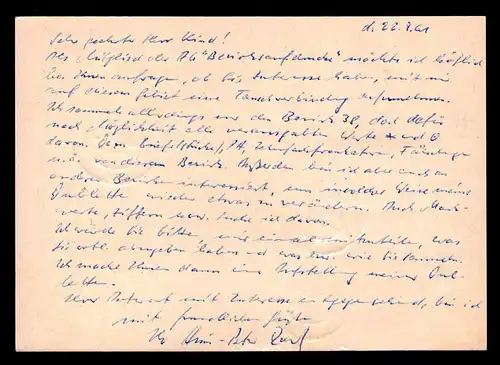 d. 22.7.61
Sehr geehrter Herr Kind!
Als Mitglied der AG "Bezirksaufdrucke" möchte ich höflich
bei Ihnen anfragen, ob Sie Interesse haben, mit mir
auf diesem Gebiet eine Tauschverbindung aufzunehmen.
Ich sammle allerdings nur den Bezirk 38, doch dafür
nach Möglichkeit alle verausgabten Werte * und ⊙
davon. Dazu Briefstücke, PA, Zehnfachfrankatur,
u.ä. von diesem Bezirk. Außerdem bin ich aber auch an
anderen Bezirken interessiert, um in solcher Weise meine
Dublette wieder etwas zu verändern. Auch
werte, Ziffern usw. suche ich davon.
Ich würde Sie bitten, mir einmal mitzuteilen, was
Sie evtl. abzugeben haben und was bzw. wie Sie sammeln.
Ich mache Ihnen dann eine Aufstellung meiner Dub-
lette.
Ihrer Antwort mit Interesse entgegensehend, bin ich
mit freundlichen Grüßen
Ihr